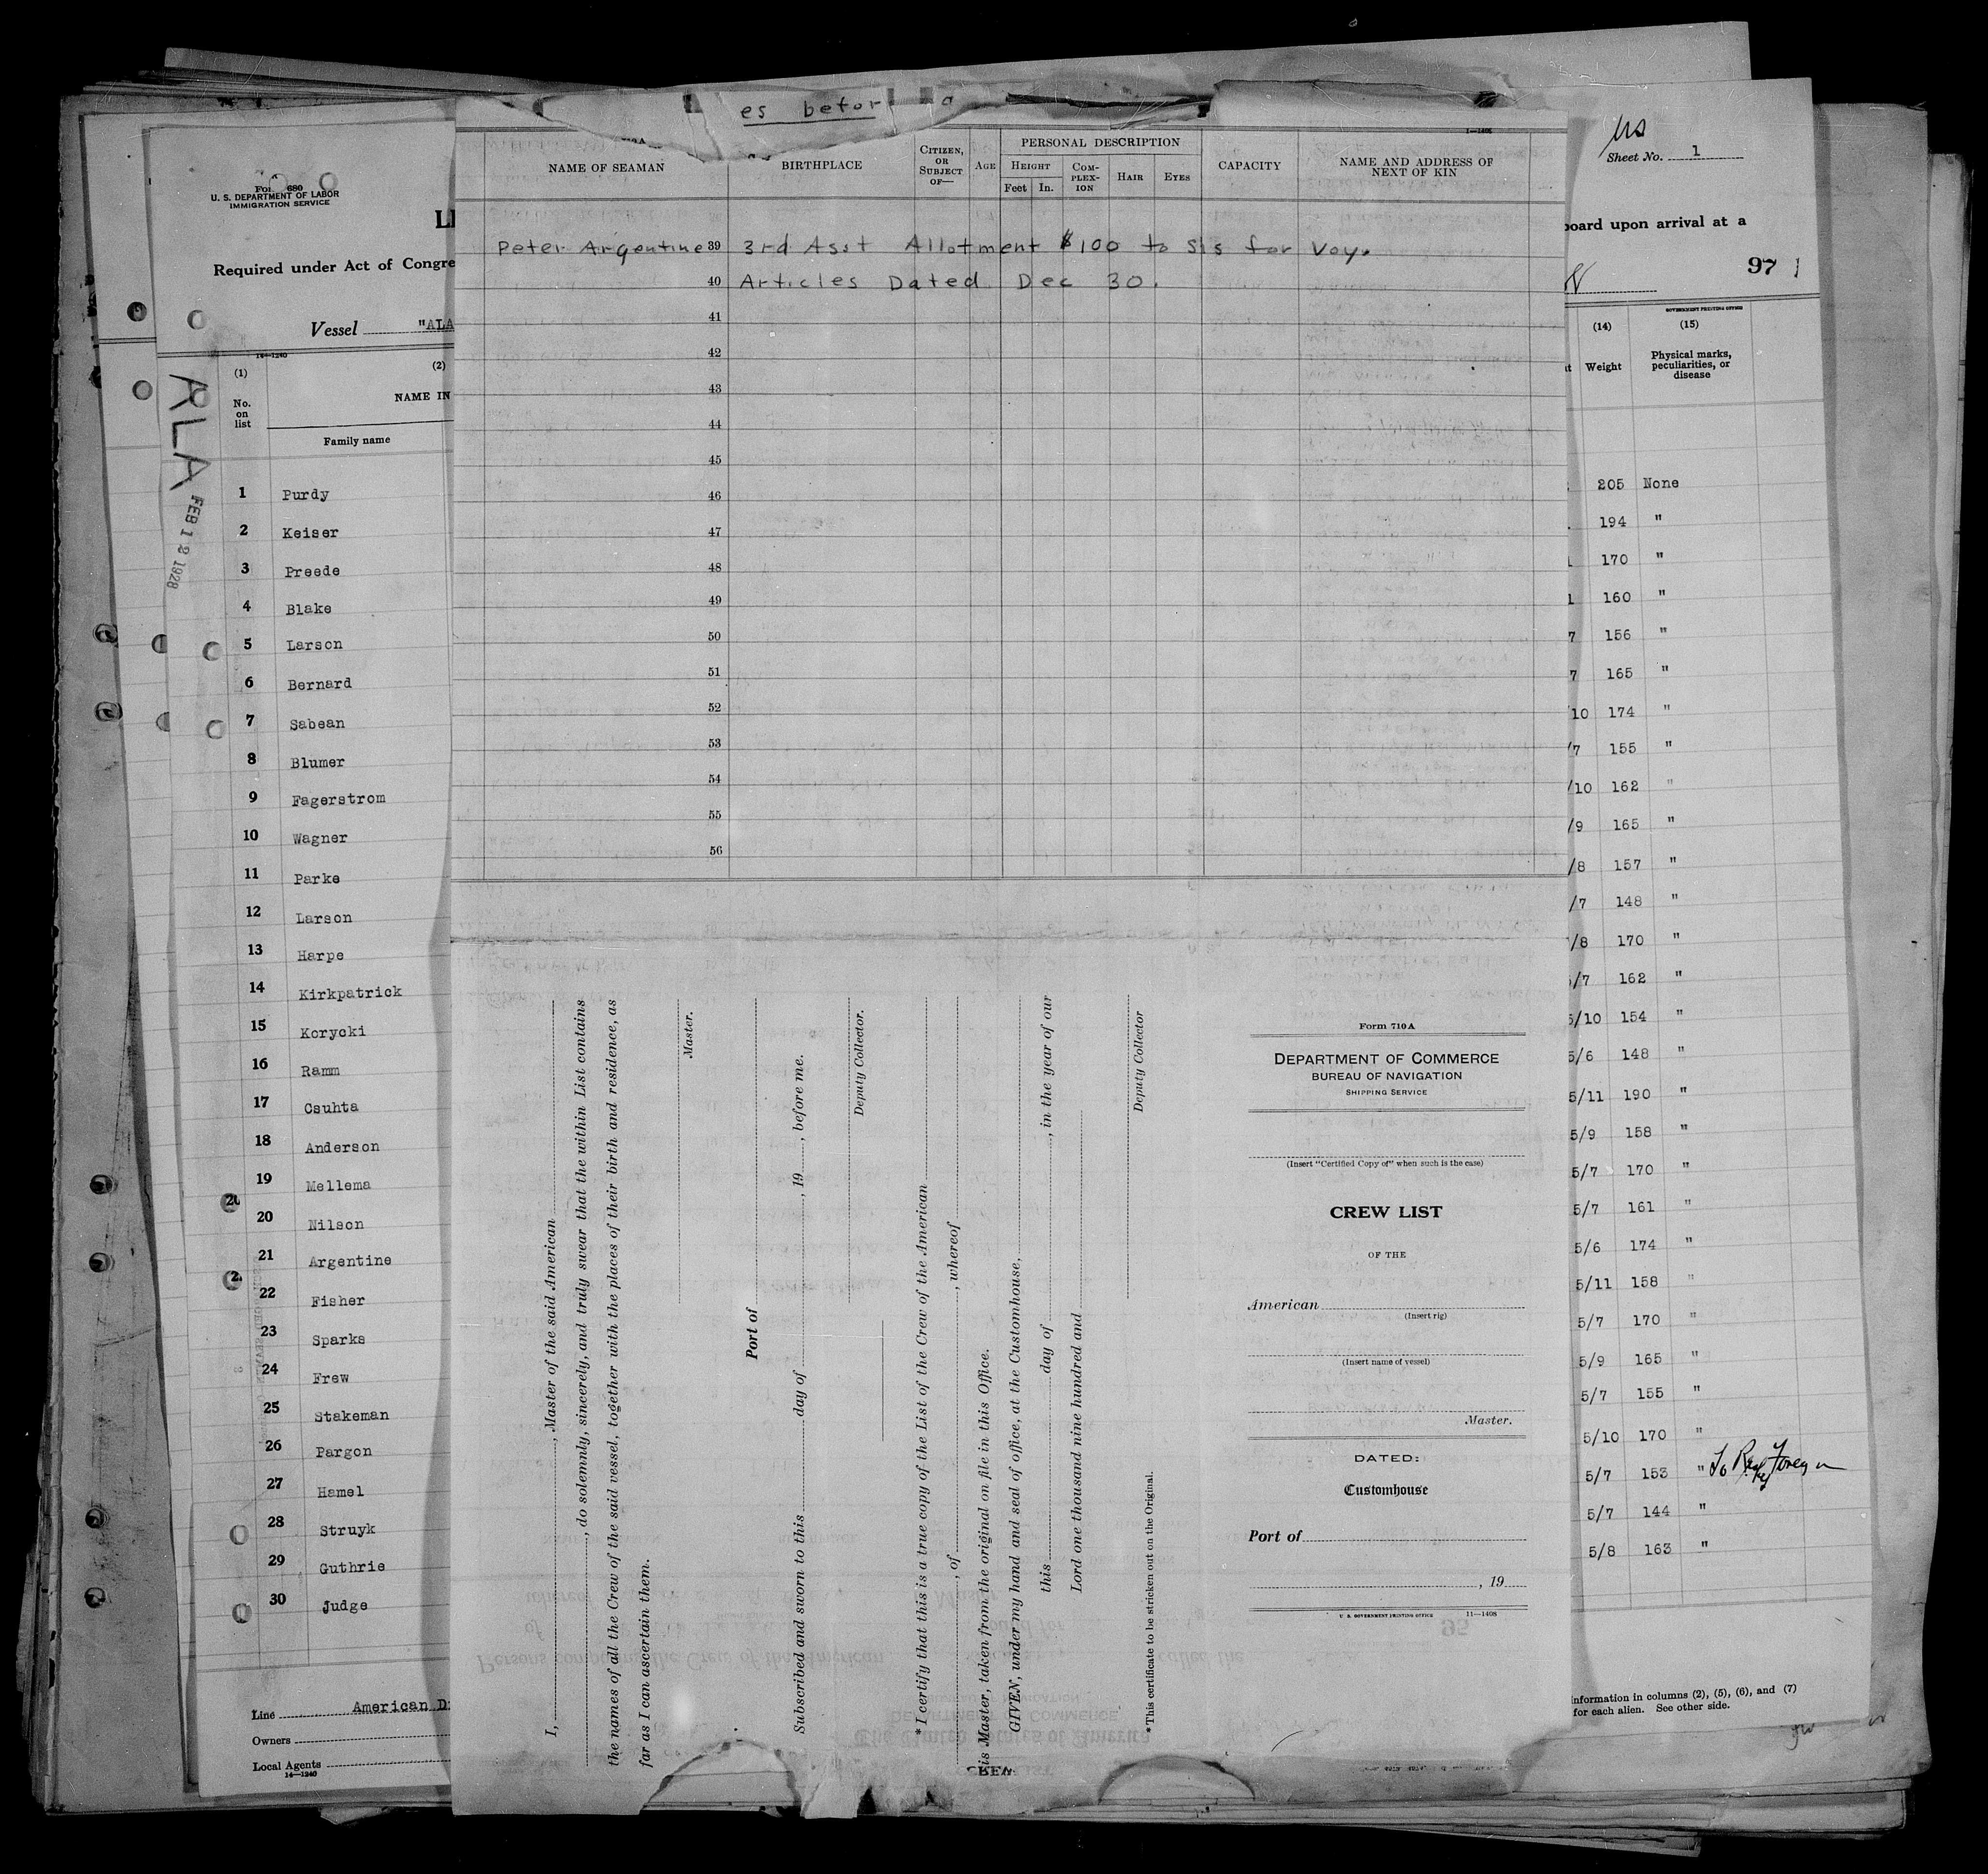 es befor a
NAME OF SEAMAN
BIRTHPLACE
CITIZEN, OR SUBJECT OF—
AGE
PERSONAL DESCRIPTION
HEIGHT
Feet In.
COM-PLEX-ION
HAIR
EYES
CAPACITY
NAME AND ADDRESS OF NEXT OF KIN
Peter Argentine 39 3rd Asst Allotment $100 to Sis for Voy.
40 Articles Dated Dec 30.
41
42
43
44
45
46
47
48
49
50
51
52
53
54
55
56
I, , Master of the said American
, do solemnly, sincerely, and truly swear that the within List contains
the names of all the Crew of the said vessel, together with the places of their birth and residence, as
far as I can ascertain them.
Master.
Port of
Subscribed and sworn to this day of , 19 , before me.
Deputy Collector.
*I certify that this is a true copy of the List of the Crew of the American
, of , whereof
is Master, taken from the original on file in this Office.
GIVEN, under my hand and seal of office, at the Customhouse,
this day of , in the year of our
Lord one thousand nine hundred and
Deputy Collector
*This certificate to be stricken out on the Original.
Form 710A
DEPARTMENT OF COMMERCE
BUREAU OF NAVIGATION
SHIPPING SERVICE
(Insert "Certified Copy of" when such is the case)
CREW LIST
OF THE
American
(Insert rig)
(Insert name of vessel)
Master.
DATED:
Customhouse
Port of
, 19
U. S. GOVERNMENT PRINTING OFFICE 11—1408
680
U. S. DEPARTMENT OF LABOR
IMMIGRATION SERVICE
LI
Required under Act of Congre
Vessel "ALA
14—1240
(1)
(2)
No. on list
NAME IN
Family name
RLA
FEB 12 1928
1 Purdy
2 Keiser
3 Preede
4 Blake
5 Larson
6 Bernard
7 Sabean
8 Blumer
9 Fagerstrom
10 Wagner
11 Parke
12 Larson
13 Harpe
14 Kirkpatrick
15 Korycki
16 Ramm
17 Csuhta
18 Anderson
19 Mellema
20 Nilson
21 Argentine
22 Fisher
23 Sparks
24 Frew
25 Stakeman
26 Pargon
27 Hamel
28 Struyk
29 Guthrie
30 Judge
Line American D
Owners
Local Agents
14—1240
Sheet No. 1
board upon arrival at a
97
GOVERNMENT PRINTING OFFICE
(14)
(15)
Weight
Physical marks, peculiarities, or disease
205 None
194 "
170 "
1 160 "
7 156 "
7 165 "
/10 174 "
/7 155 "
/10 162 "
/9 165 "
/8 157 "
/7 148 "
/8 170 "
/7 162 "
5/10 154 "
5/6 148 "
5/11 190 "
5/9 158 "
5/7 170 "
5/7 161 "
5/6 174 "
5/11 158 "
5/7 170 "
5/9 165 "
5/7 155 "
5/10 170 "
5/7 153 "
5/7 144 "
5/8 163 "
information in columns (2), (5), (6), and (7)
for each alien. See other side.